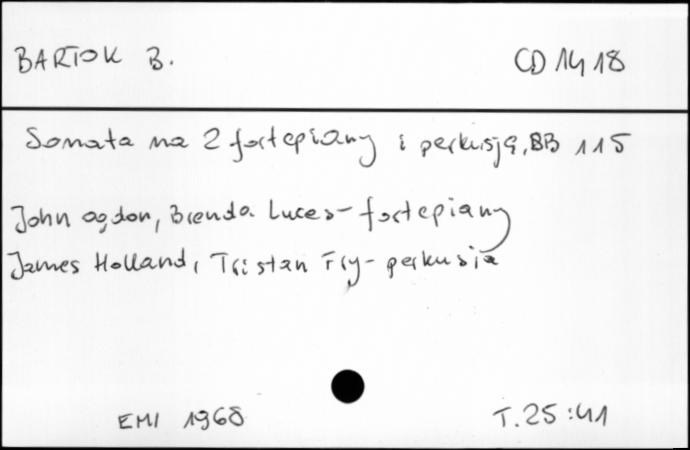 BARTOK B. CD 1418
Sonata na 2 fortepiany i perkusję, BB 115
John Ogdon, Brenda Luces - fortepiany
James Holland, Tristan Fry - perkusja
EMI 1968 T. 25:41